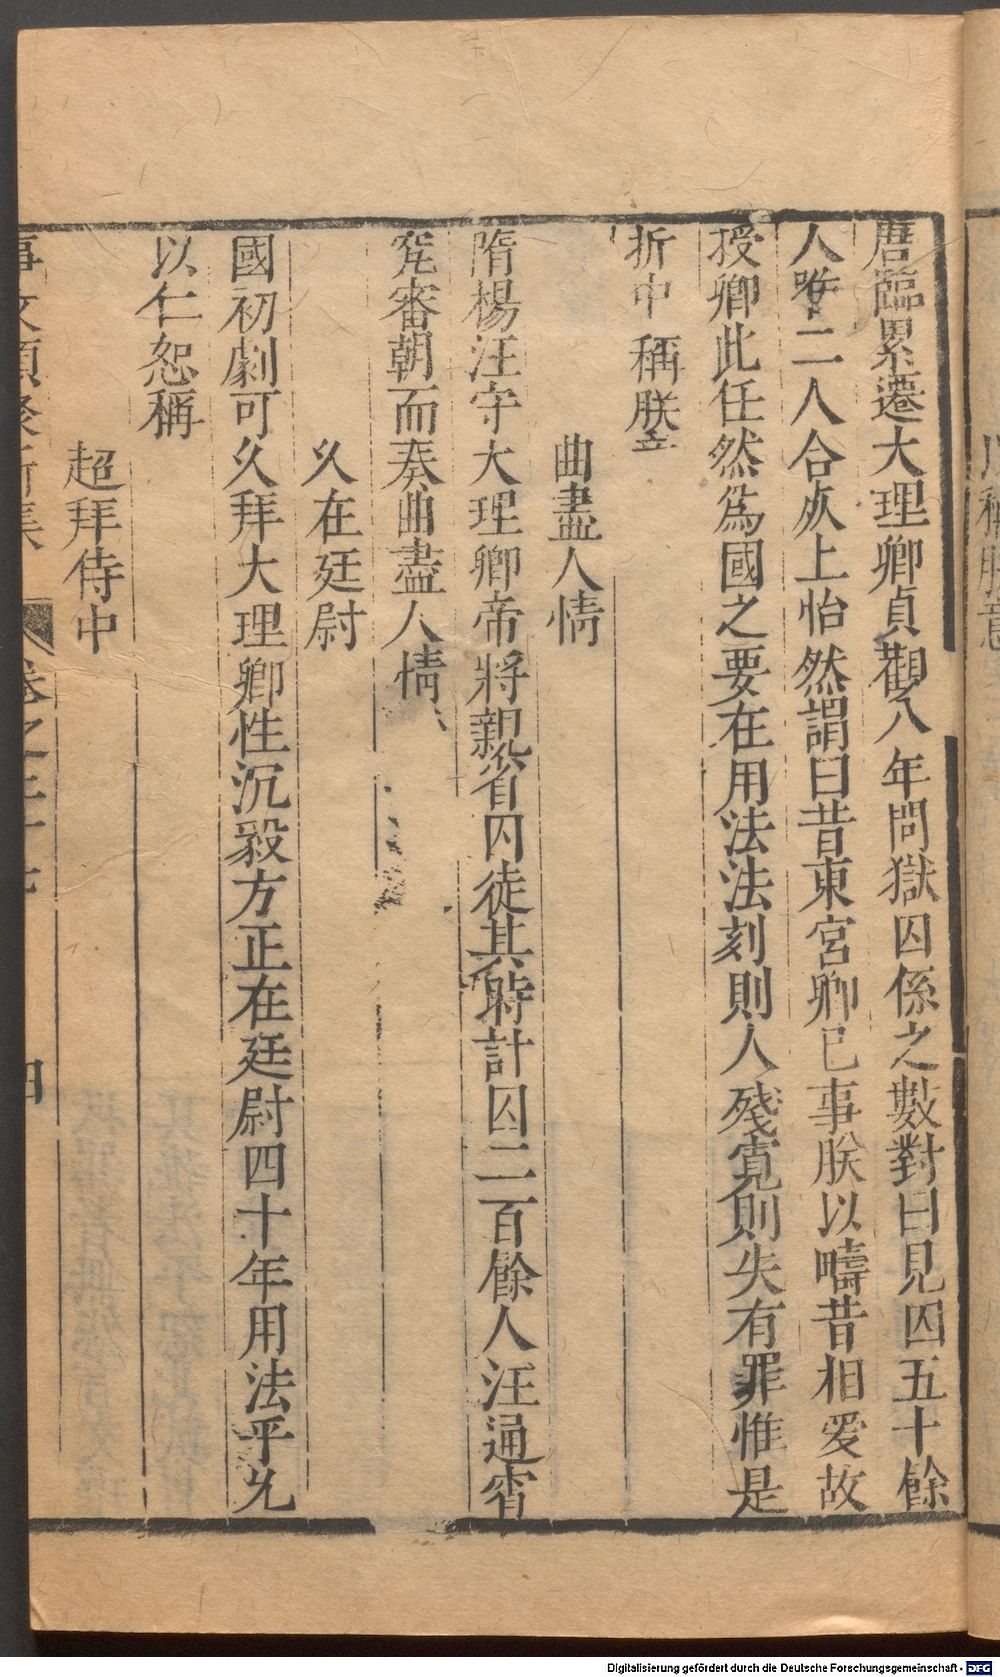 唐臨累遷大理卿貞觀八年問獄囚係之數對曰見囚五十餘
人唯二人合死上怡然謂曰昔東宮卿已事朕以疇昔相愛故
授卿此任然爲國之要在用法法刻則人殘寬則失有罪惟是
折中稱朕
曲盡人情
隋楊汪守大理卿帝將親省囚徒其時計囚二百餘人汪通宵
究審朝而奏曲盡人情
久在廷尉
國初劇可久拜大理卿性沉毅方正在廷尉四十年用法平允
以仁恕稱
超拜侍中
事文類聚新集 卷之二十七 四
Digitalisierung gefördert durch die Deutsche Forschungsgemeinschaft - DFG